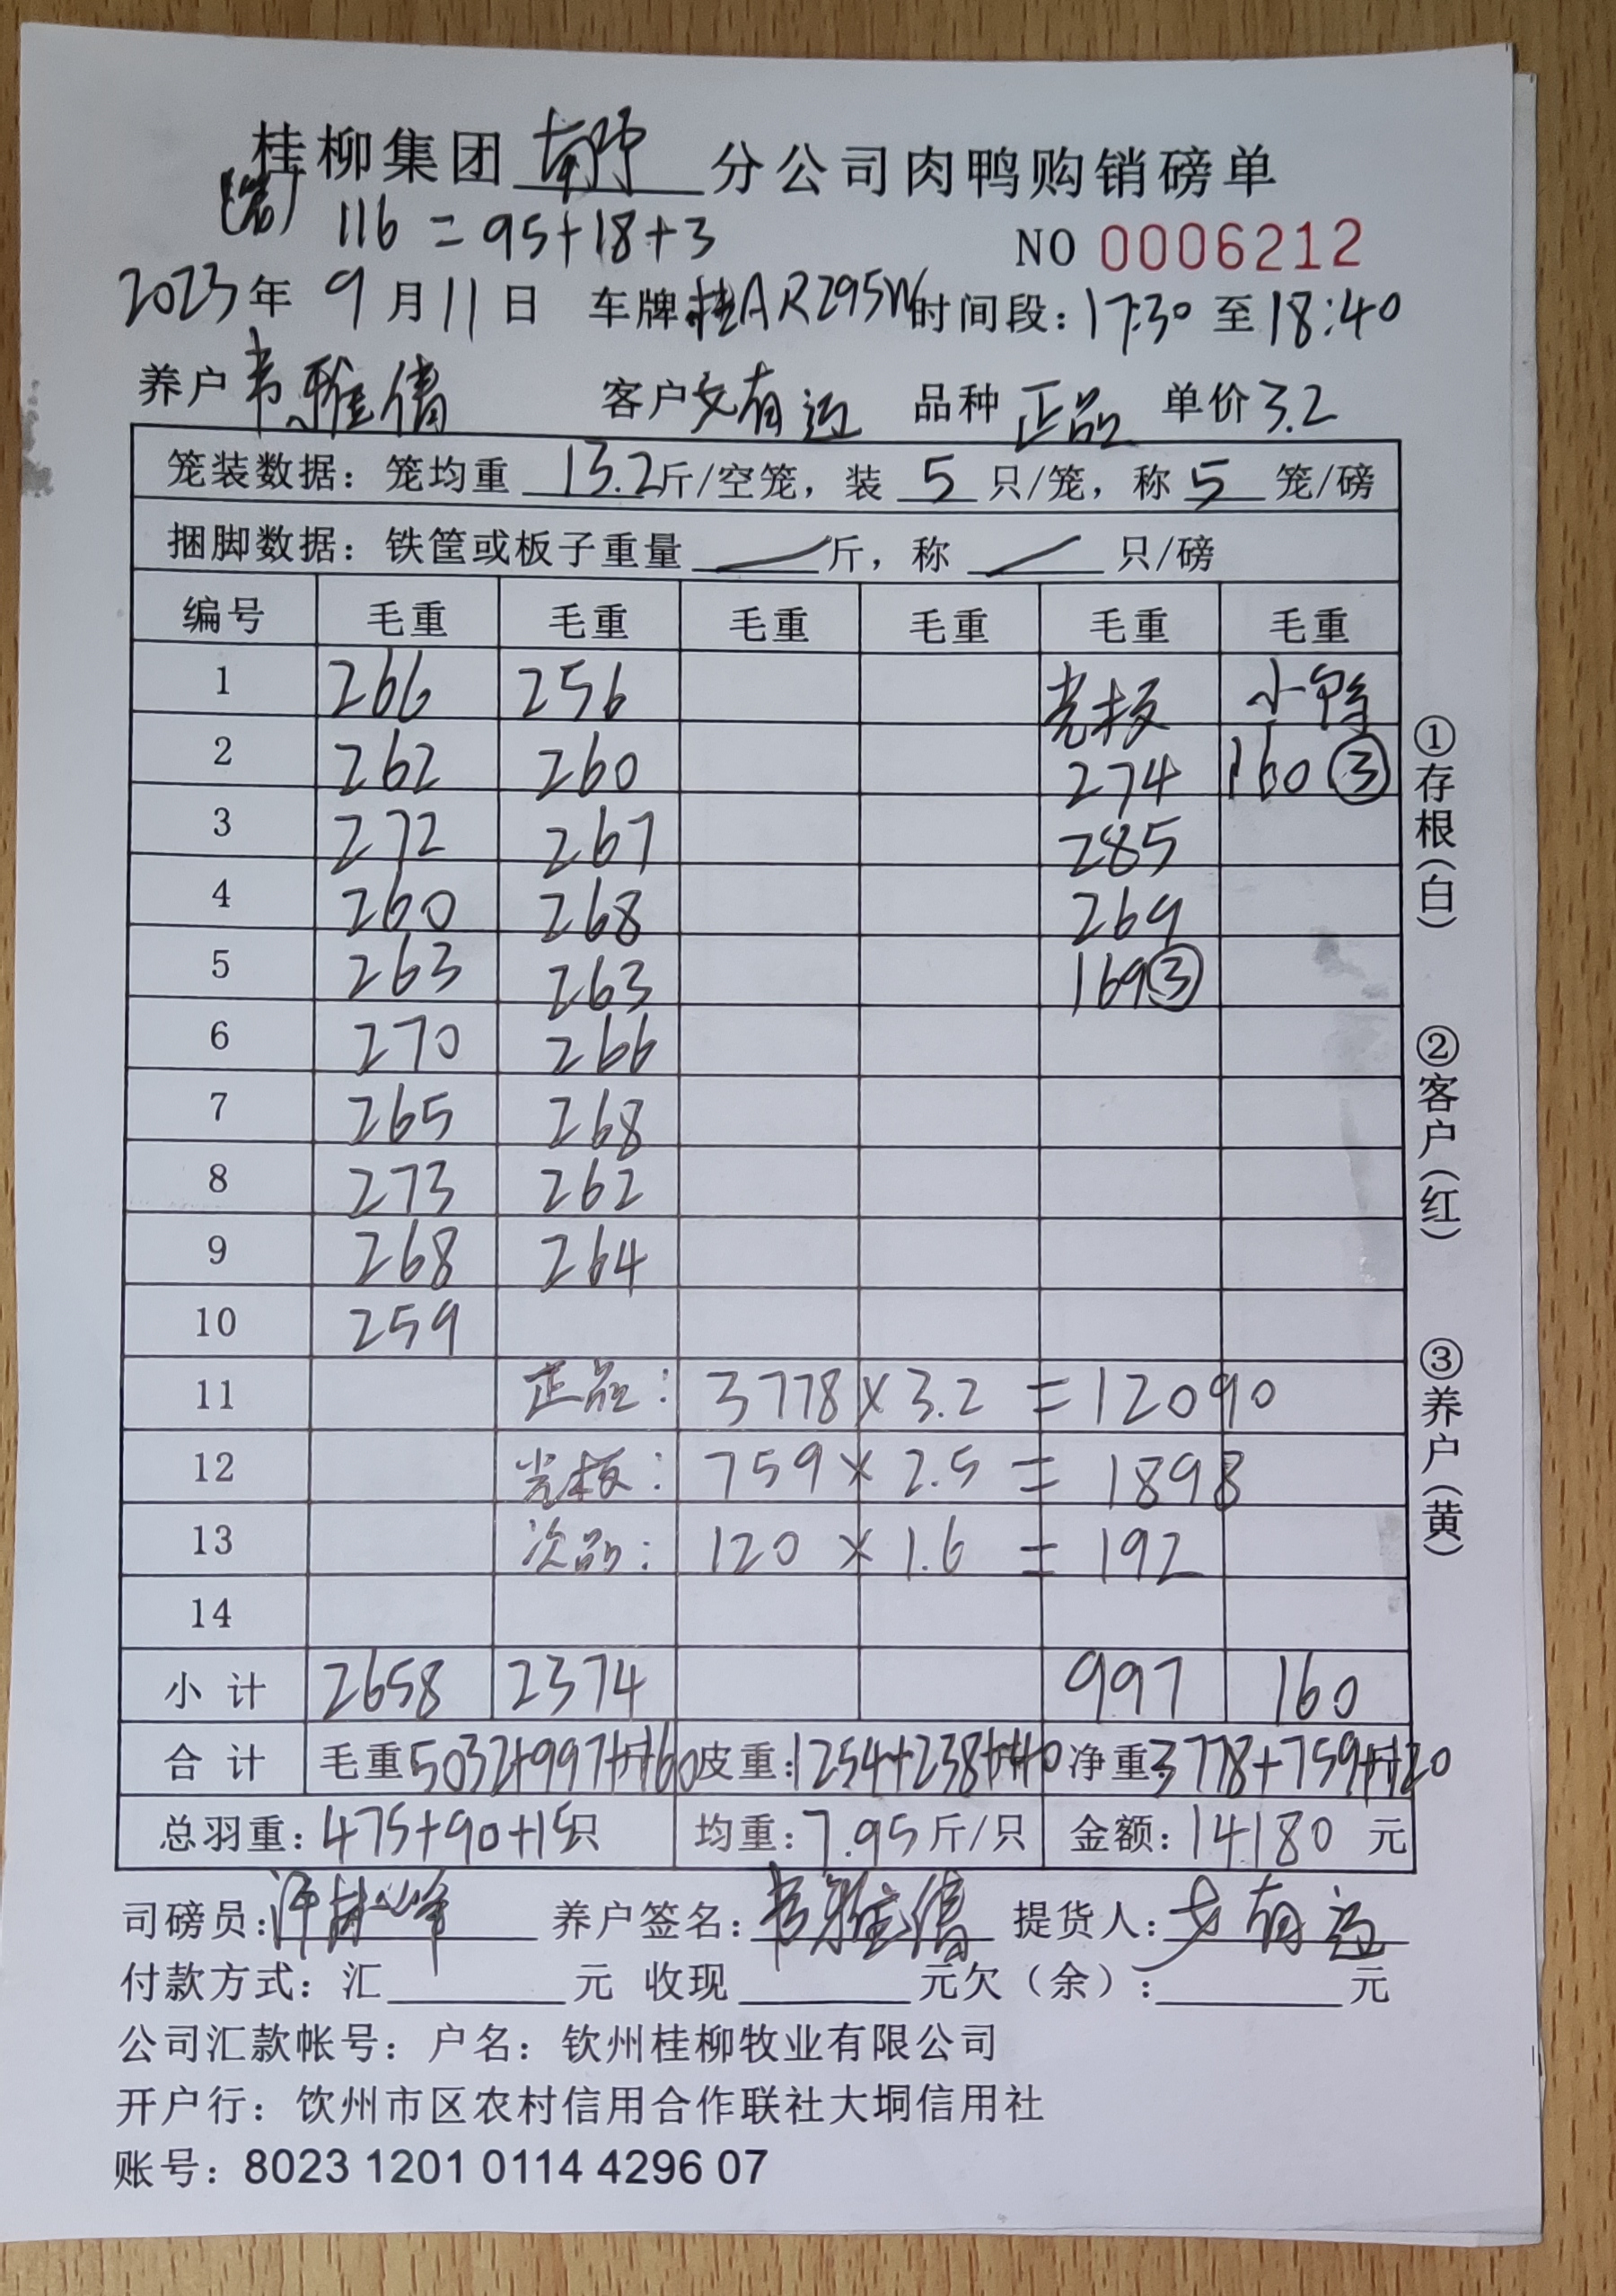 桂柳集团 南宁 分公司肉鸭购销磅单
116 = 95+18+3
NO 0006212
2023年 9月11日 车牌桂AR295W时间段：17:30 至18:40
养户韦雅倩 客户文有远 品种 正品 单价3.2
笼装数据：笼均重 13.2斤/空笼，装 5 只/笼，称 5 笼/磅
捆脚数据：铁筐或板子重量 / 斤，称 / 只/磅
编号 毛重 毛重 毛重 毛重 毛重 毛重
1 266 256 光板 小鸭
2 262 260 274 160③
3 272 267 285
4 260 268 269
5 263 263 169③
6 270 266
7 265 268
8 273 262
9 268 264
10 259
11 正品：3778×3.2=12090
12 光板：759×2.5=1898
13 次品：120×1.6=192
14
小计 2658 2374 997 160
合计 毛重5032+997+160 皮重：1254+238+40 净重3778+759+120
总羽重：475+90+15只 均重：7.95斤/只 金额：14180 元
司磅员： 养户签名：韦雅倩 提货人：文有远
付款方式：汇 元 收现 元欠（余）： 元
公司汇款帐号：户名：钦州桂柳牧业有限公司
开户行：饮州市区农村信用合作联社大垌信用社
账号：8023 1201 0114 4296 07
①存根（白）
②客户（红）
③养户（黄）